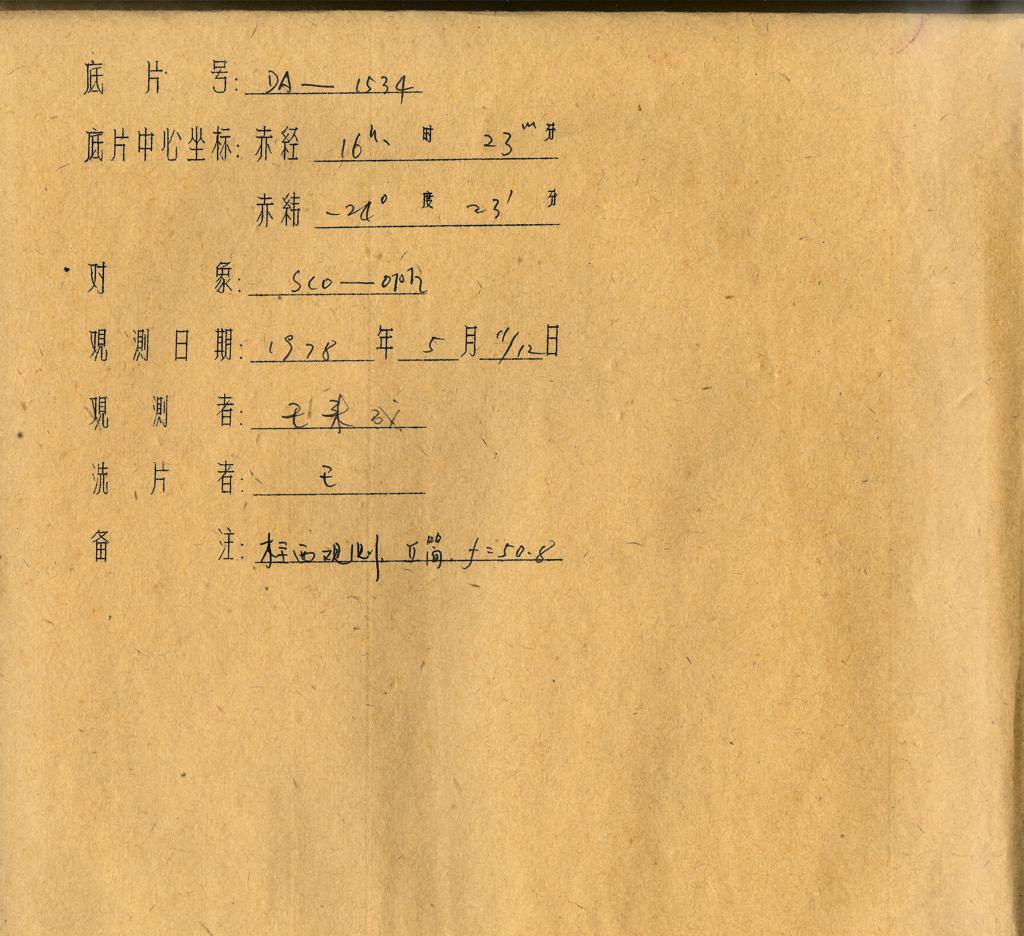 底片号: DA— 1534
底片中心坐标: 赤经 16h 时 23m 分
赤纬 -24° 度 23' 分
对象: SCO—OPh
观测日期: 1978 年 5 月 11/12 日
观测者: 王来
洗片者: 王
备注: 西观测. 筒. f=50.8